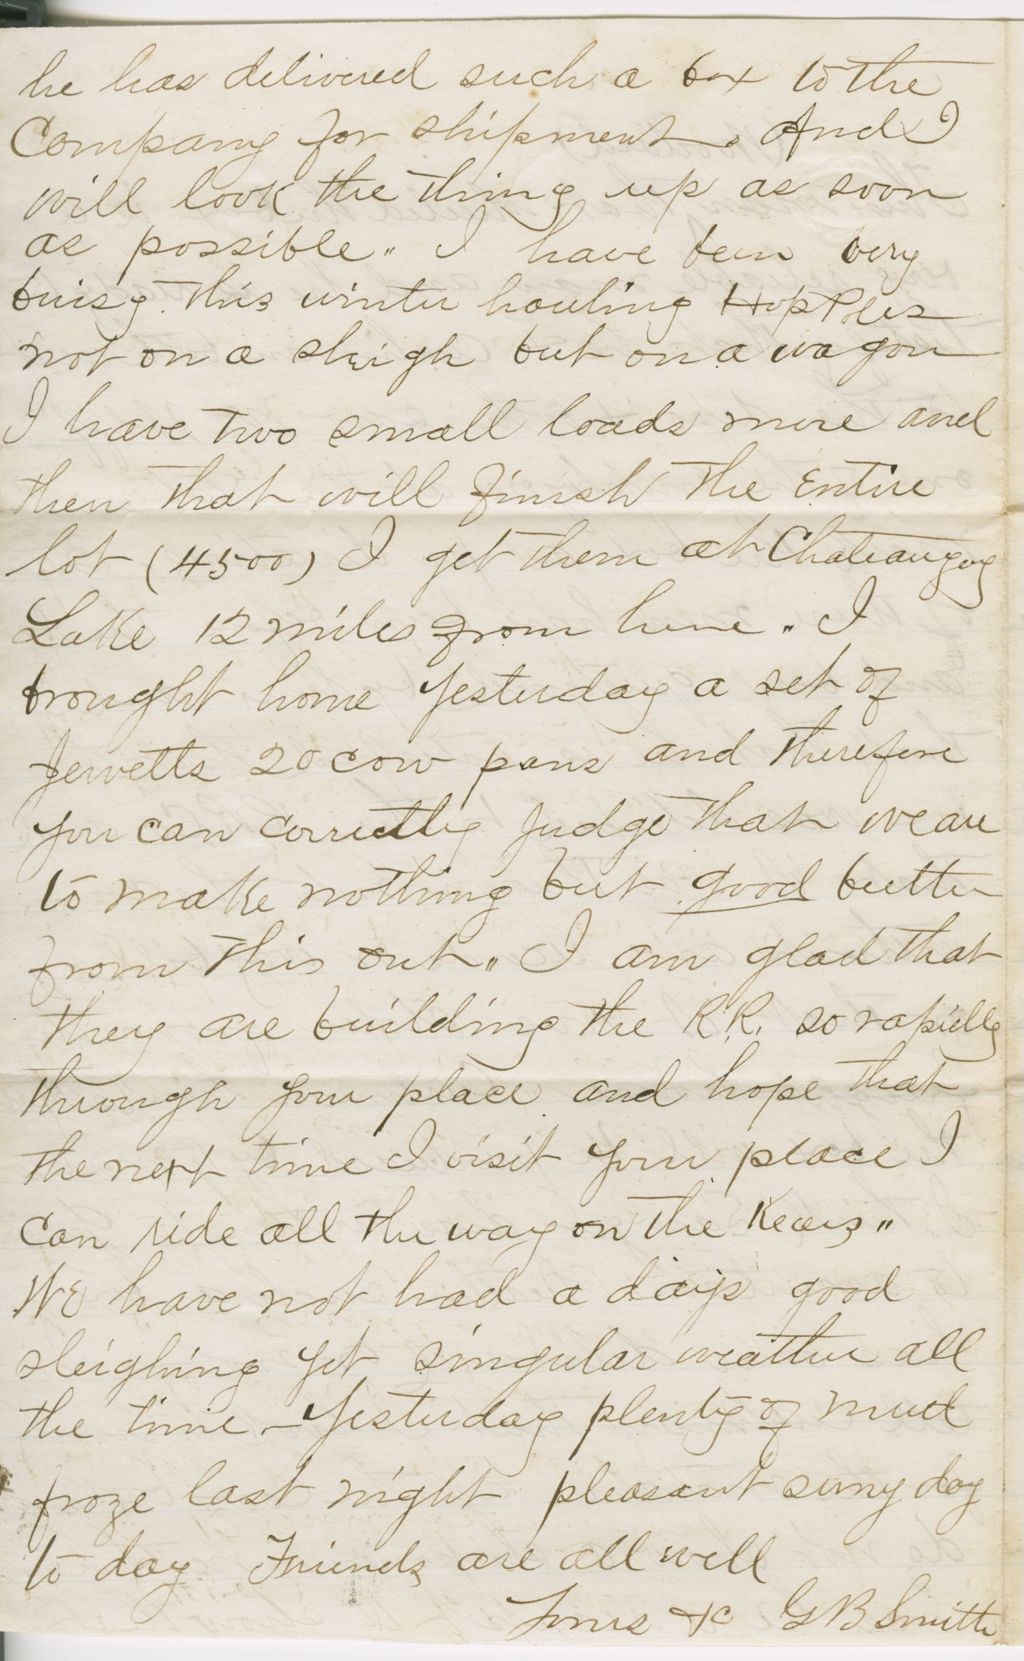 he has delivered such a box to the
Company for shipment. And I
will look the thing up as soon
as possible" I have been very
buisy this winter hauling Hop Poles
not on a sleigh but on a wagon
I have two small loads more and
then that will finish the Entire
lot (4500) I get them at Chateaugay
Lake 12 miles from here" I
brought home Yesterday a set of
Jewetts 20 cow pans and therefore
you can correctly Judge that we are
to make nothing but good butter
from this out" I am glad that
they are building the R.R. so rapidly
through your place and hope that
the next time I visit your place I
Can ride all the way on the Kears"
We have not had a days good
sleighing yet singular weather all
the time – Yesterday plenty of mud
froze last night pleasant suny day
to day. Friends are all well
Yours &c G B Smith